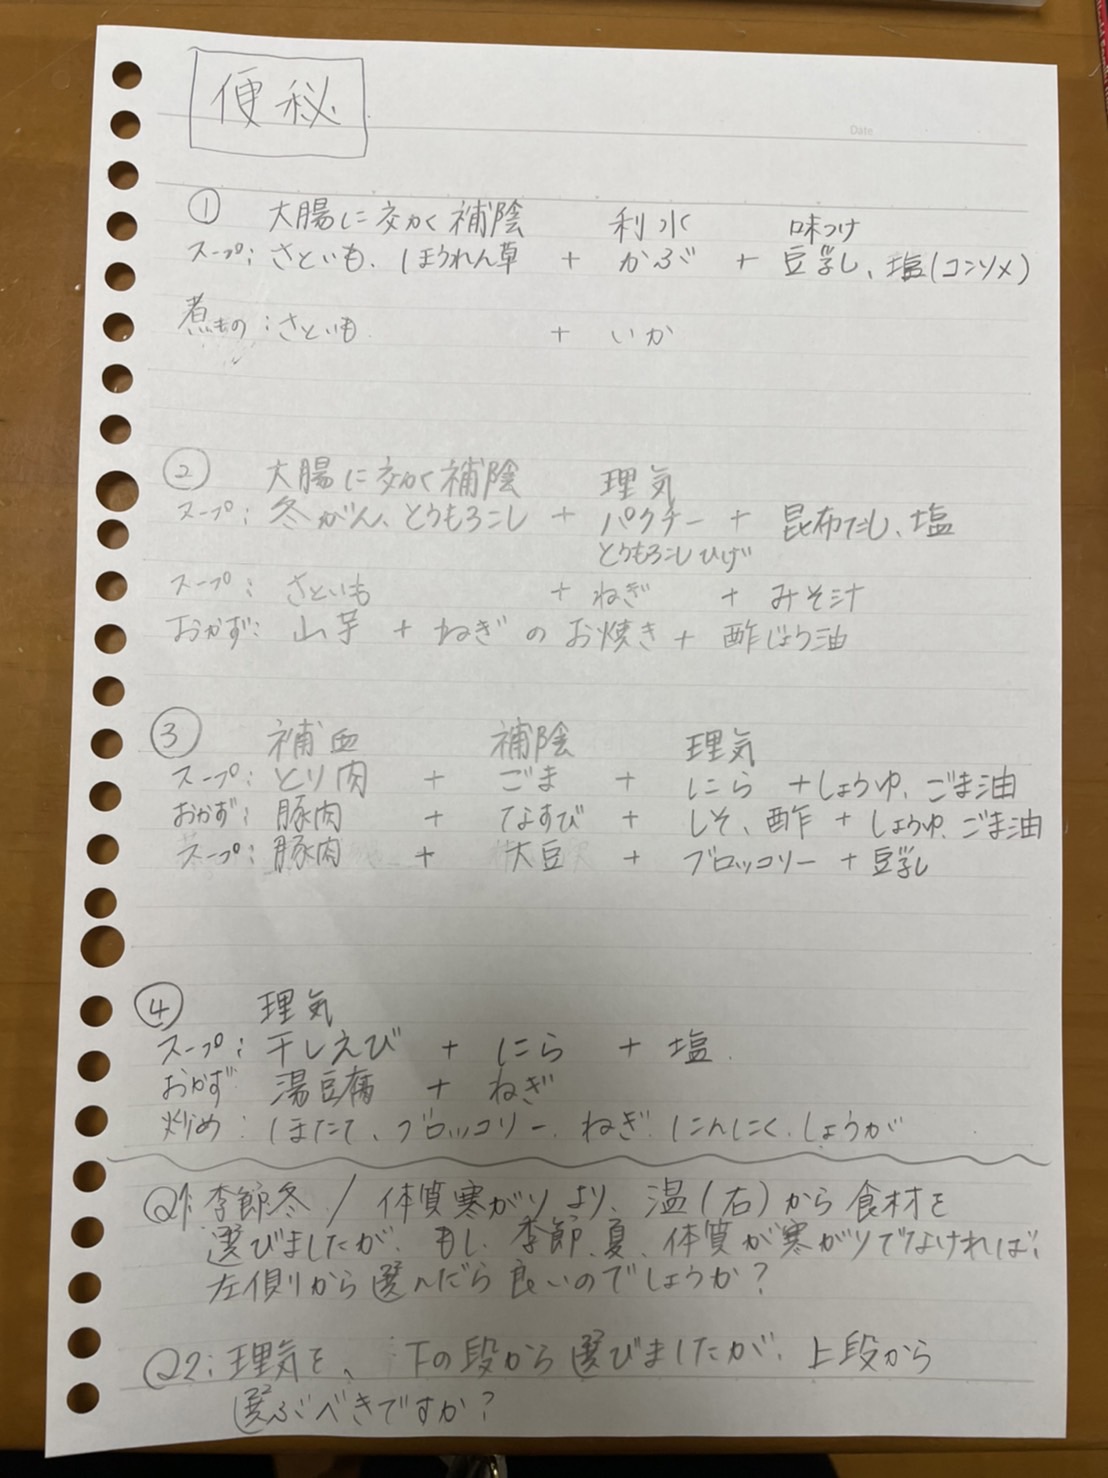 便秘
Date
① 大腸に効く補陰 利水 味つけ
スープ: さといも、ほうれん草 + かぶ + 豆乳、塩(コンソメ)
煮もの: さといも + いか
② 大腸に効く補陰 理気
スープ: 冬がん、とうもろこし + パクチー + 昆布だし、塩
とうもろこしひげ
スープ: さといも + ねぎ + みそ汁
おかず: 山芋 + ねぎのお焼き + 酢じょう油
③ 補血 補陰 理気
スープ: とり肉 + ごま + にら + しょうゆ、ごま油
おかず: 豚肉 + なすび + しそ、酢 + しょうゆ、ごま油
スープ: 豚肉 + 大豆 + ブロッコリー + 豆乳
④ 理気
スープ: 干しえび + にら + 塩
おかず 湯豆腐 + ねぎ
炒め: ほたて、ブロッコリー、ねぎ、にんにく、しょうが
Q1: 季節冬 / 体質寒がりより、温(右)から食材を
選びましたが、もし、季節、夏、体質が寒がりでなければ、
左側から選んだら良いのでしょうか?
Q2: 理気を、下の段から選びましたが、上段から
選ぶべきですか?